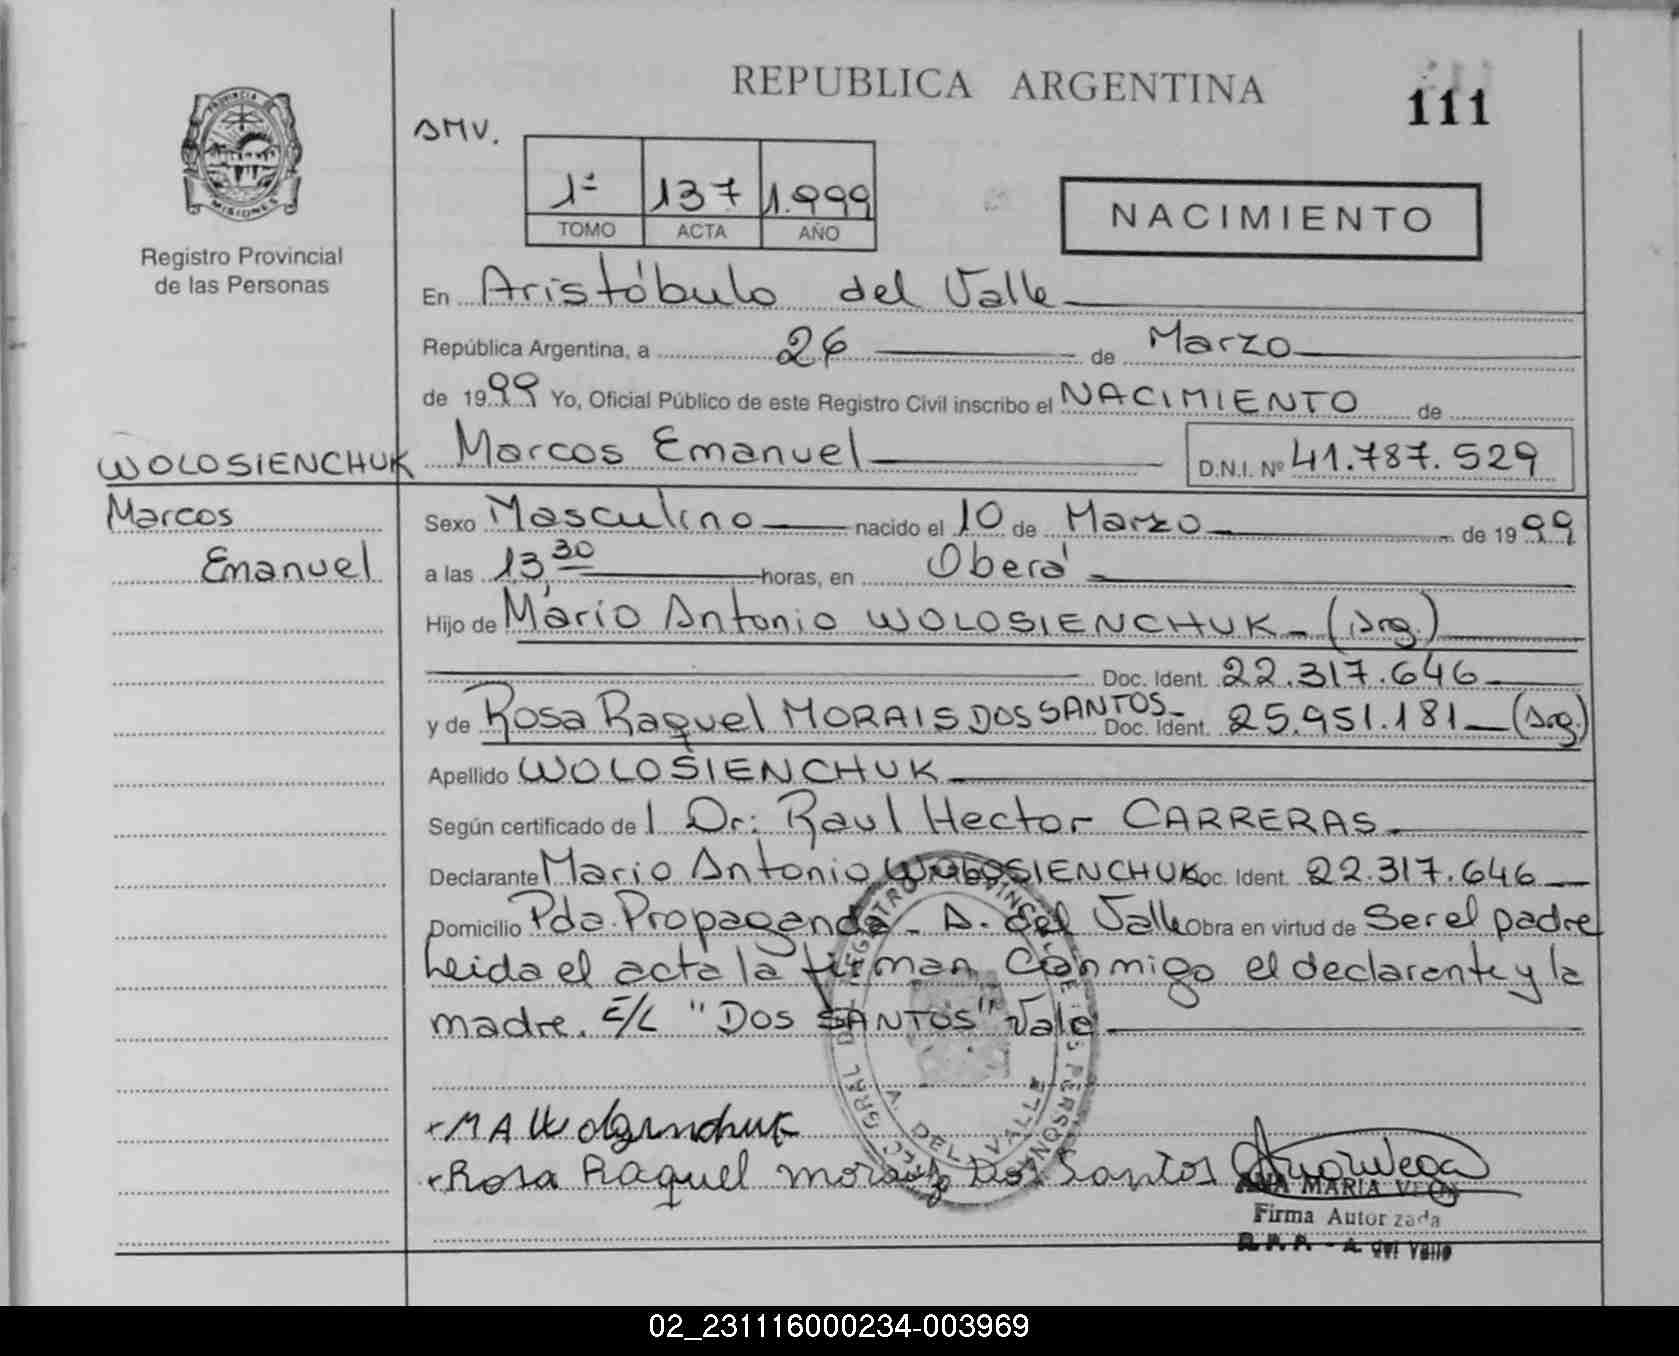 REPUBLICA ARGENTINA
111
PROVINCIA DE
MISIONES
Registro Provincial
de las Personas
AMV.
1ª 137 1.999
TOMO ACTA AÑO
NACIMIENTO
En Aristóbulo del Valle
República Argentina, a 26 de Marzo
de 1999 Yo, Oficial Público de este Registro Civil inscribo el NACIMIENTO de
WOLOSIENCHUK Marcos Emanuel D.N.I. Nº 41.787.529
Marcos Sexo Masculino nacido el 10 de Marzo de 1999
Emanuel a las 13,30 horas, en Oberá
Hijo de Mario Antonio WOLOSIENCHUK (Arg.)
Doc. Ident. 22.317.646
y de Rosa Raquel MORAIS DOS SANTOS Doc. Ident. 25.951.181 (Arg.)
Apellido WOLOSIENCHUK
Según certificado de l Dr: Raul Hector CARRERAS
Declarante Mario Antonio WOLOSIENCHUK Doc. Ident. 22.317.646
Domicilio Pda. Propaganda - A. del Valle Obra en virtud de Ser el padre
Leida el acta la firman Conmigo el declarante y la
madre. E/L "DOS SANTOS" Vale
M A
Rosa Raquel Dos Santos
ANA MARIA
Firma Autorizada
R.P.P. - A. del Valle
02_231116000234-003969